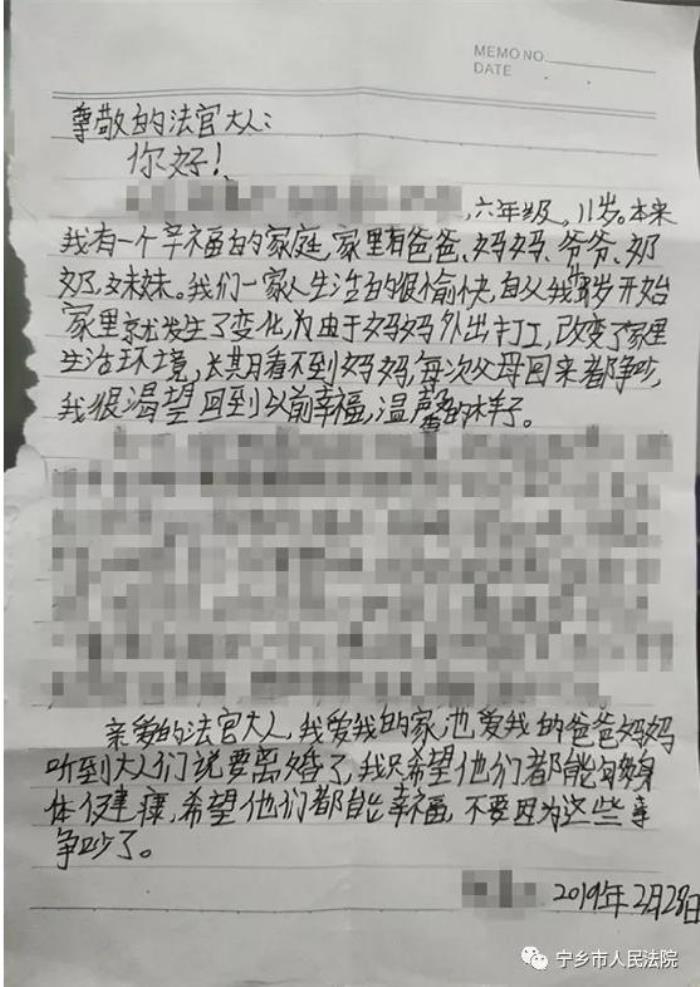 MEMO NO.
DATE
尊敬的法官大人:
你好!
,六年级,11岁。本来
我有一个辛福的家庭,家里有爸爸、妈妈、爷爷、奶
奶、妹妹。我们一家人生活的很愉快,自从我岁开始
家里就发生了变化,为由于妈妈外出打工,改变了家里
生活环境,长期看不到妈妈,每次父母回来都争吵,
我很渴望回到以前幸福,温馨的样子。
亲爱的法官大人,我爱我的家,也爱我的爸爸妈妈
听到大人们说要离婚了,我只希望他们都能够身
体健康,希望他们都能幸福,不要因为这些事
争吵了。
2019年2月28日
宁乡市人民法院